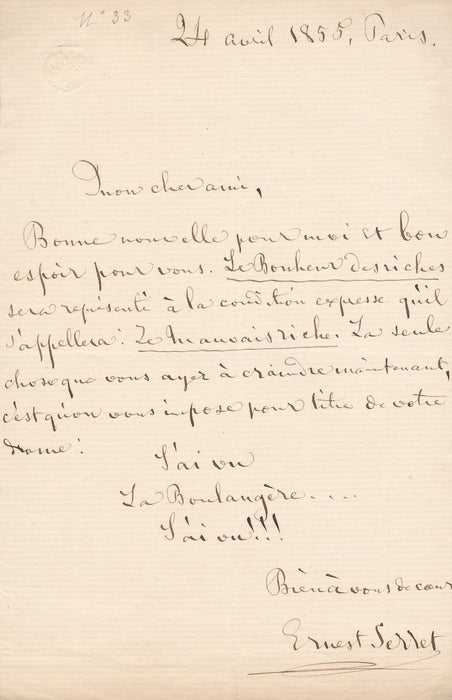 N° 33
24 avril 1855, Paris.
Mon cher ami,
Bonne nouvelle pour moi et bon
espoir pour vous. Le Bonheur des riches
sera représenté à la condition expresse qu'il
s'appellera : Le Mauvais riche. La seule
chose que vous ayez à craindre maintenant,
c'est qu'on vous impose pour titre de votre
drame :
J'ai vu
La Boulangère....
J'ai vu!!!
Bien à vous de cœur
Ernest Serret